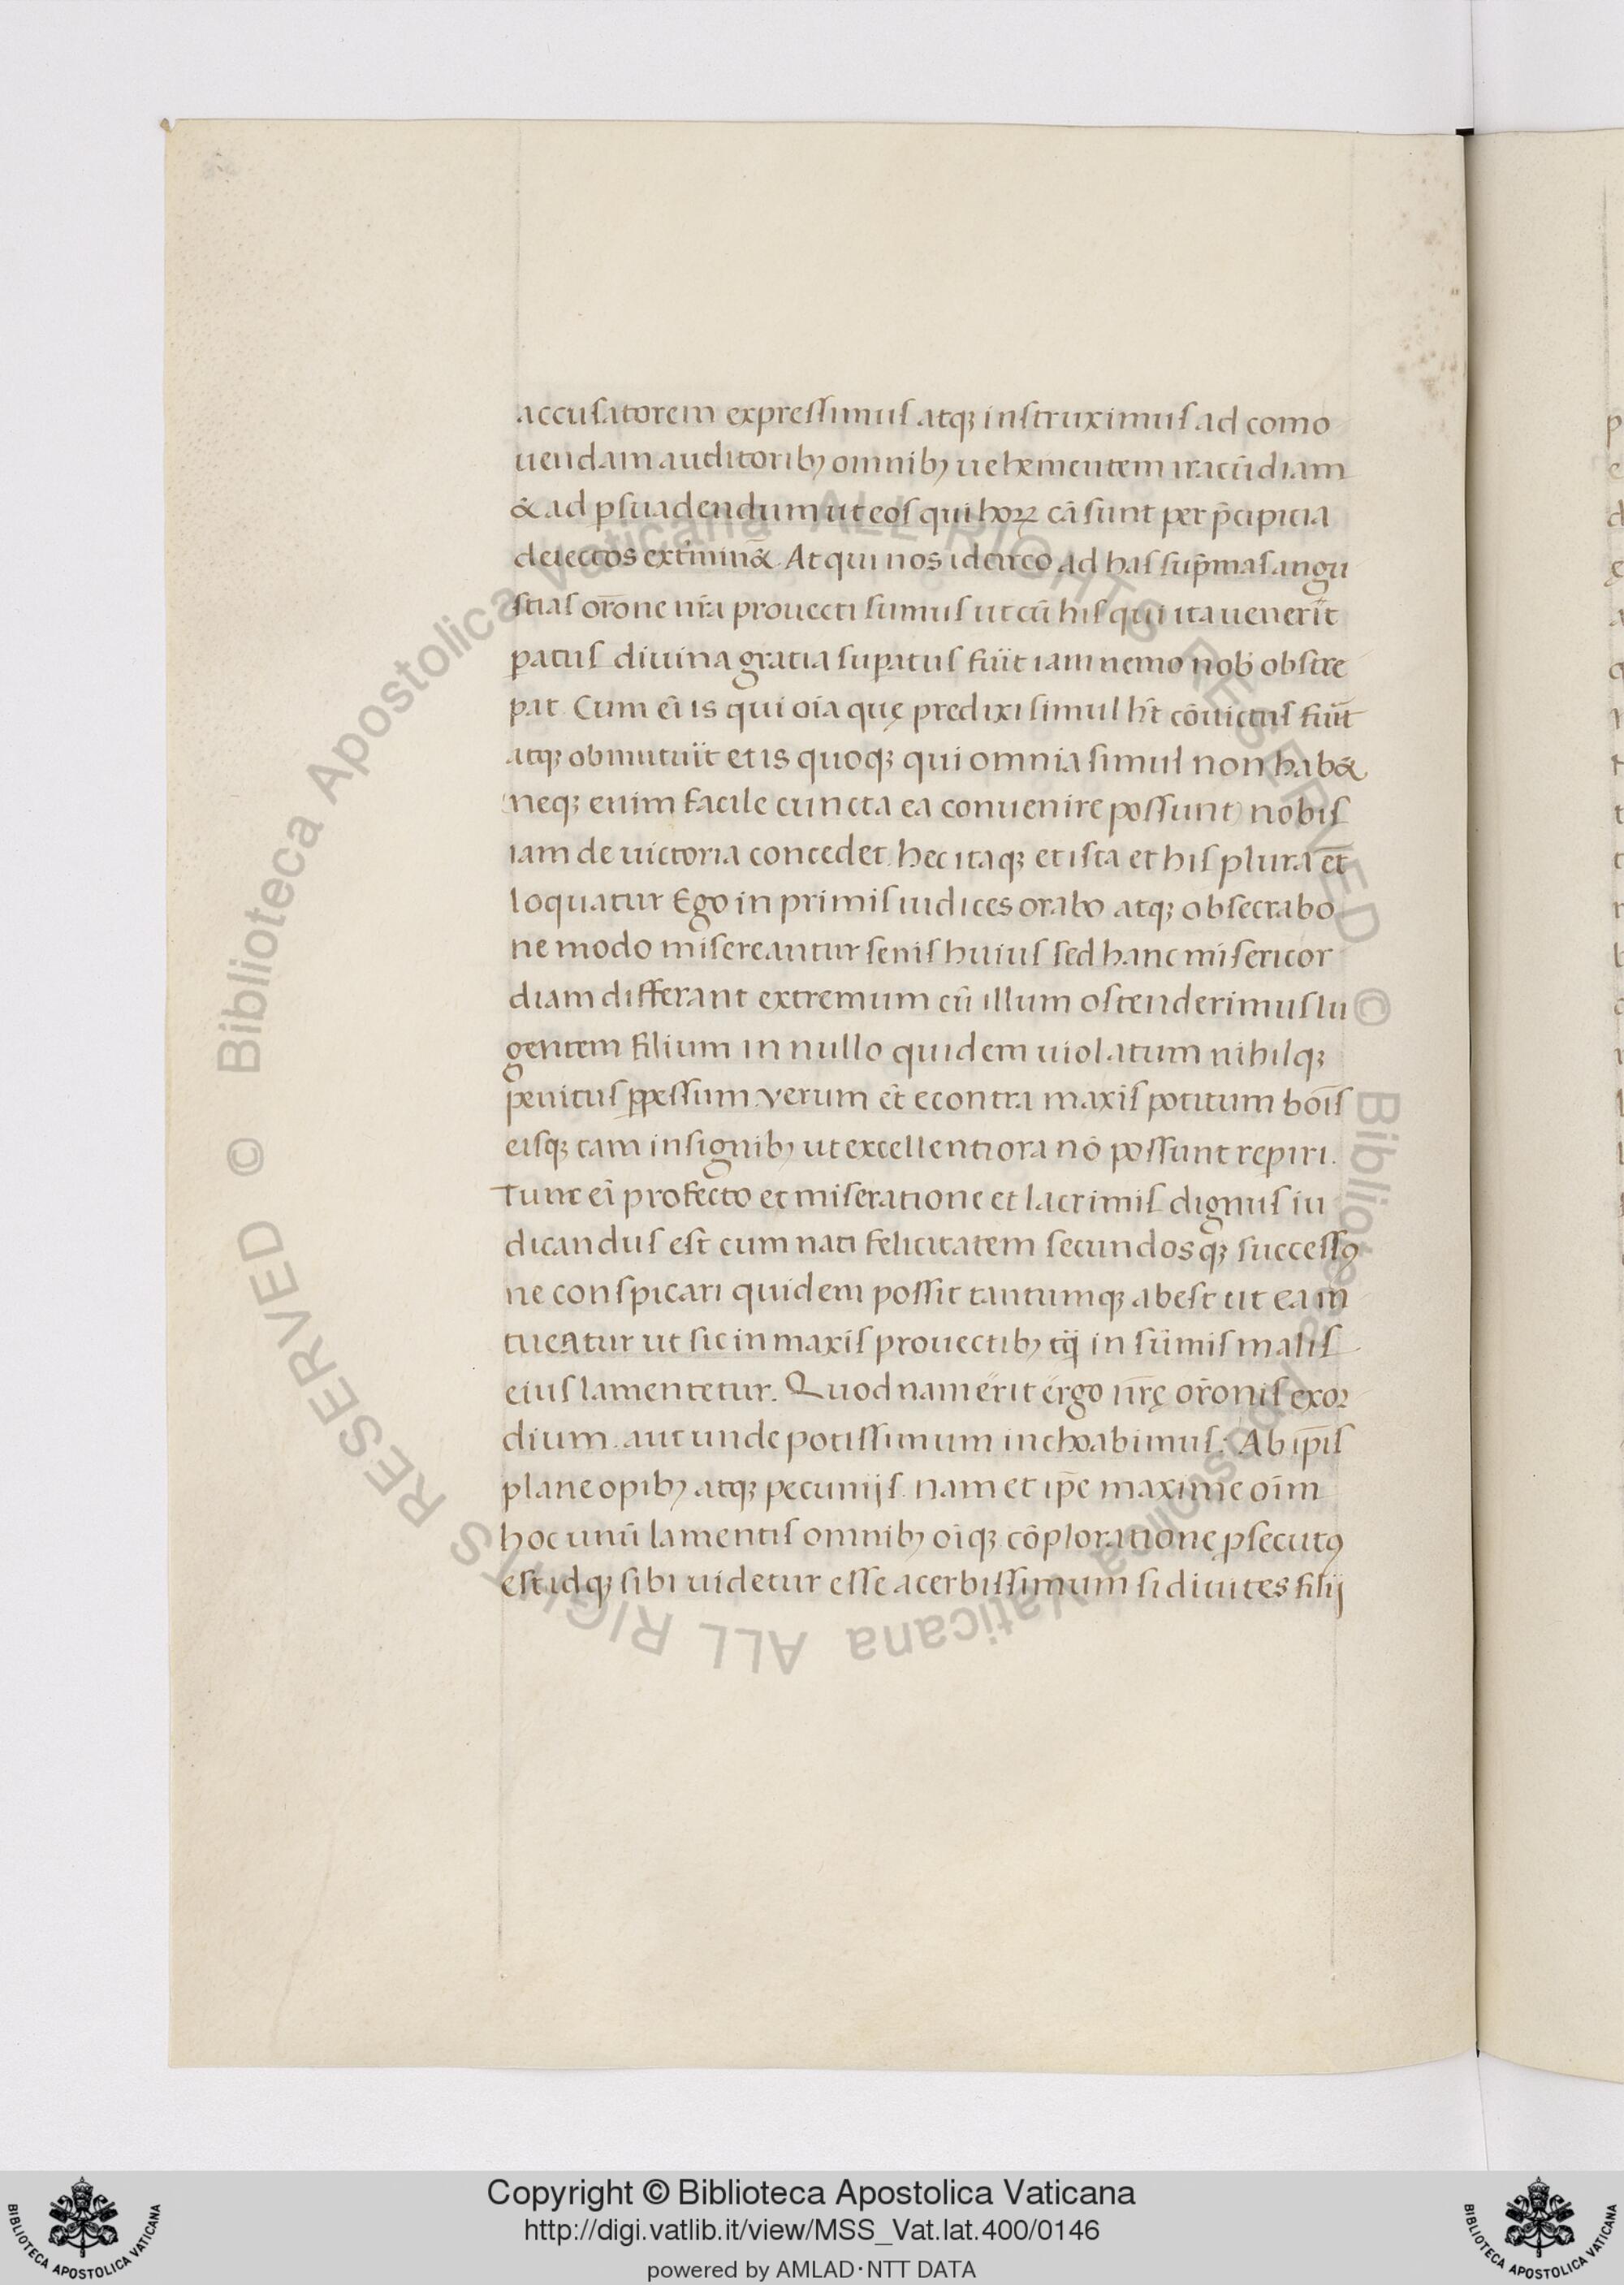 accusatorem expressimus atqꝫ instruximus ad como
uendam auditoribꝫ omnibꝫ uehementem iracūdiam
& ad ꝑsuadendum ut eos qui hoꝝ cā sunt per p̄cipicia
deiectos ext̄min&̄. At qui nos idcirco ad has sup̄mas angu
stias or̄one nr̄a prouecti sumus ut cū his qui ita uener̄it
patus diuina gratia suꝑatus fūit iam nemo nob̄ obstre
pat. Cum eī is qui oīa quę predixi simul h̄t cōuictus fūit
atqꝫ obmutūit et is quoqꝫ qui omnia simul non hab&
(neqꝫ enim facile cuncta ea conuenire possunt) nobis
iam de uictoria concedet. hec itaqꝫ et ista et his plura et̄
loquatur Ego in primis iudices orabo atqꝫ obsecrabo
ne modo misereantur senis huius sed hanc misericor
diam differant extremum cū illum ostenderimus lu
gentem filium in nullo quidem uiolatum nihilqꝫ
penitus ꝑpessum. verum et̄ econtra maxīs potitum bōis
eisqꝫ tam insignibꝫ ut excellentiora nō possunt reꝑiri.
Tunc eī profecto et miseratione et lacrimis dignus iu
dicandus est cum nati felicitatem secundosqꝫ successꝰ
ne conspicari quidem possit tantumqꝫ abest ut eam
tueatur ut sic in maxīs prouectibꝫ tq̄ in sūmis malis
eius lamentetur. Quodnam erit ergo nr̄ę or̄onis exor
dium. aut unde potissimum inchoabimus. Ab ip̄is
plane opibꝫ atqꝫ pecunijs. nam et ip̄e maxime oīm
hoc unū lamentis omnibꝫ oīqꝫ cōploratione ꝓsecutꝰ
est idqꝫ sibi uidetur esse acerbissimum si diuites filij
Copyright © Biblioteca Apostolica Vaticana
http://digi.vatlib.it/view/MSS_Vat.lat.400/0146
powered by AMLAD·NTT DATA